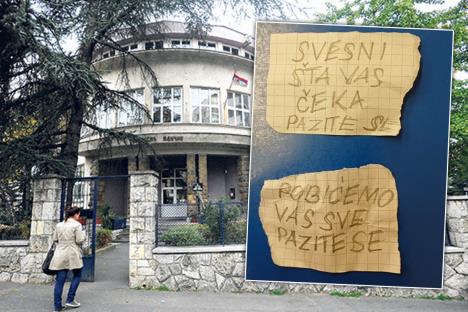 SVESNI
ŠTA VAS
ČEKA
PAZITE SE
ROBIĆEMO
VAS SVE
PAZITE SE